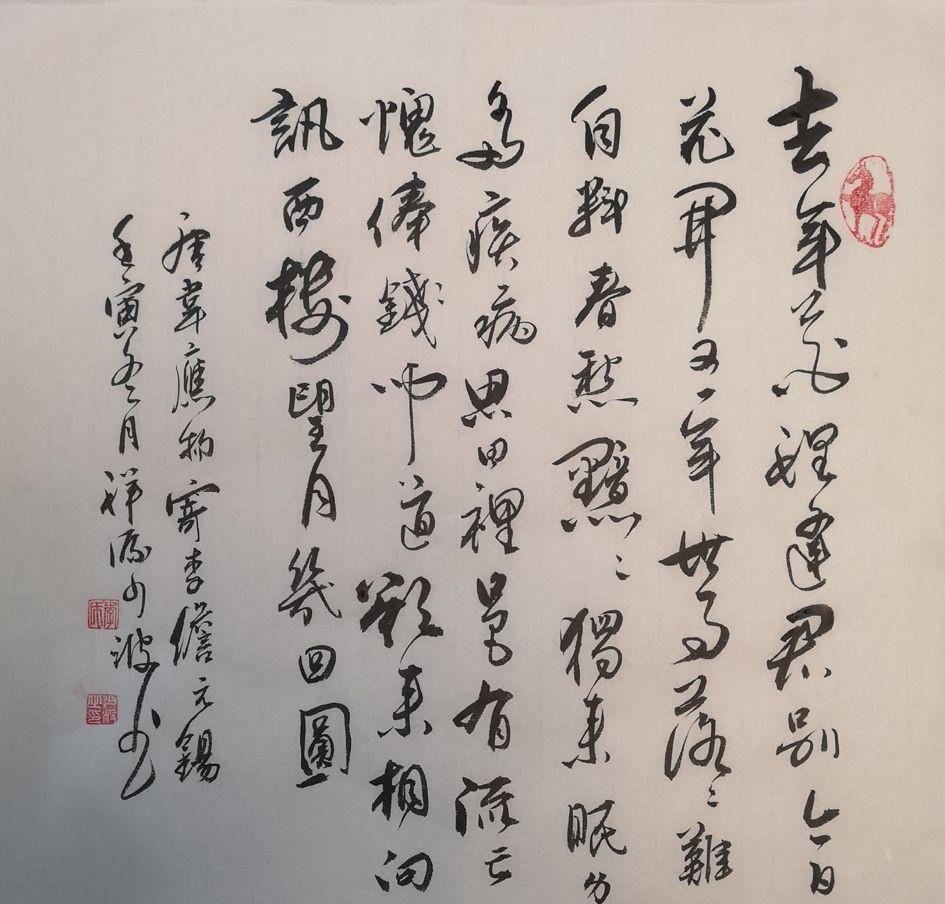 去年花裡逢君别今日
花開又一年世事茫〻難
自料春愁黯〻獨来眠身
多疾病思田裡邑有流亡
愧俸錢聞道欲来相问
訊西樓望月幾回圓
唐韋應物寄李儋元錫
壬寅冬月祥源少波书